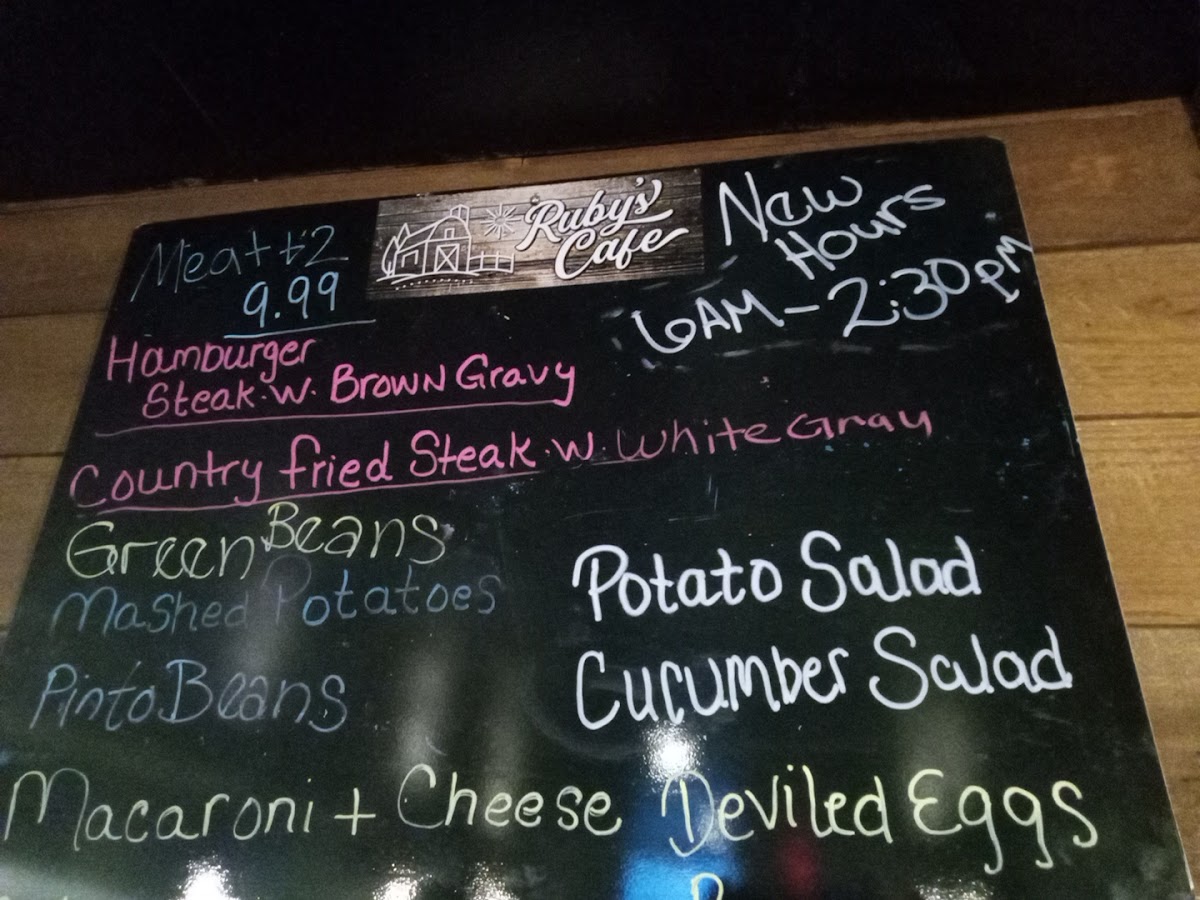 Meat +2
9.99
Ruby's
Cafe
New
Hours
6AM - 2:30pm
Hamburger
Steak.w. Brown Gravy
Country fried Steak.w. White Gray
Green Beans
Mashed Potatoes
Pinto Beans
Potato Salad
Cucumber Salad
Macaroni + Cheese
Deviled Eggs